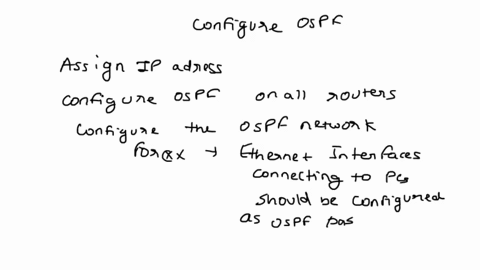 Configure OSPF
Assign IP adress
configure OSPF on all routers
Configure the OSPF network
for → Ethernet Interfaces
connecting to PCs
should be configured
as OSPF pas